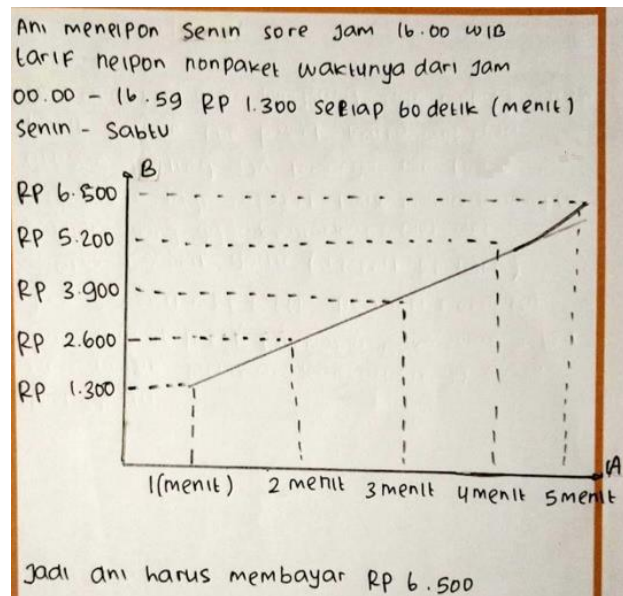 Ani menelpon Senin sore jam 16.00 WIB
tarif nelpon nonpaket waktunya dari jam
00.00 - 16.59 RP 1.300 setiap 60 detik (menit)
Senin - Sabtu
B
RP 6.500
RP 5.200
RP 3.900
RP 2.600
RP 1.300
A
1(menit) 2 menit 3 menit 4 menit 5 menit
Jadi ani harus membayar RP 6.500